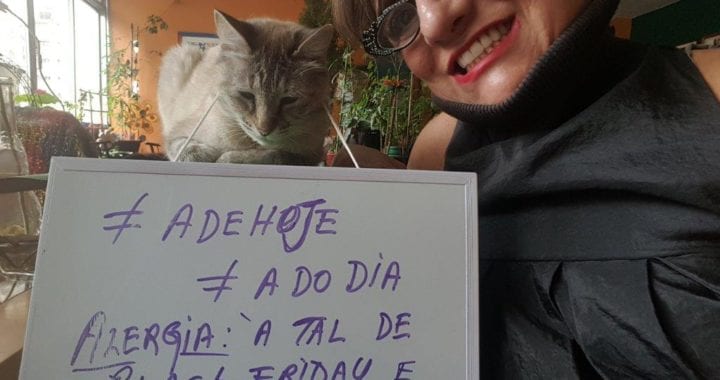 ≠ ADEHOJE
≠ A DO DIA
ALERGIA: À TAL DE
BLACK FRIDAY E